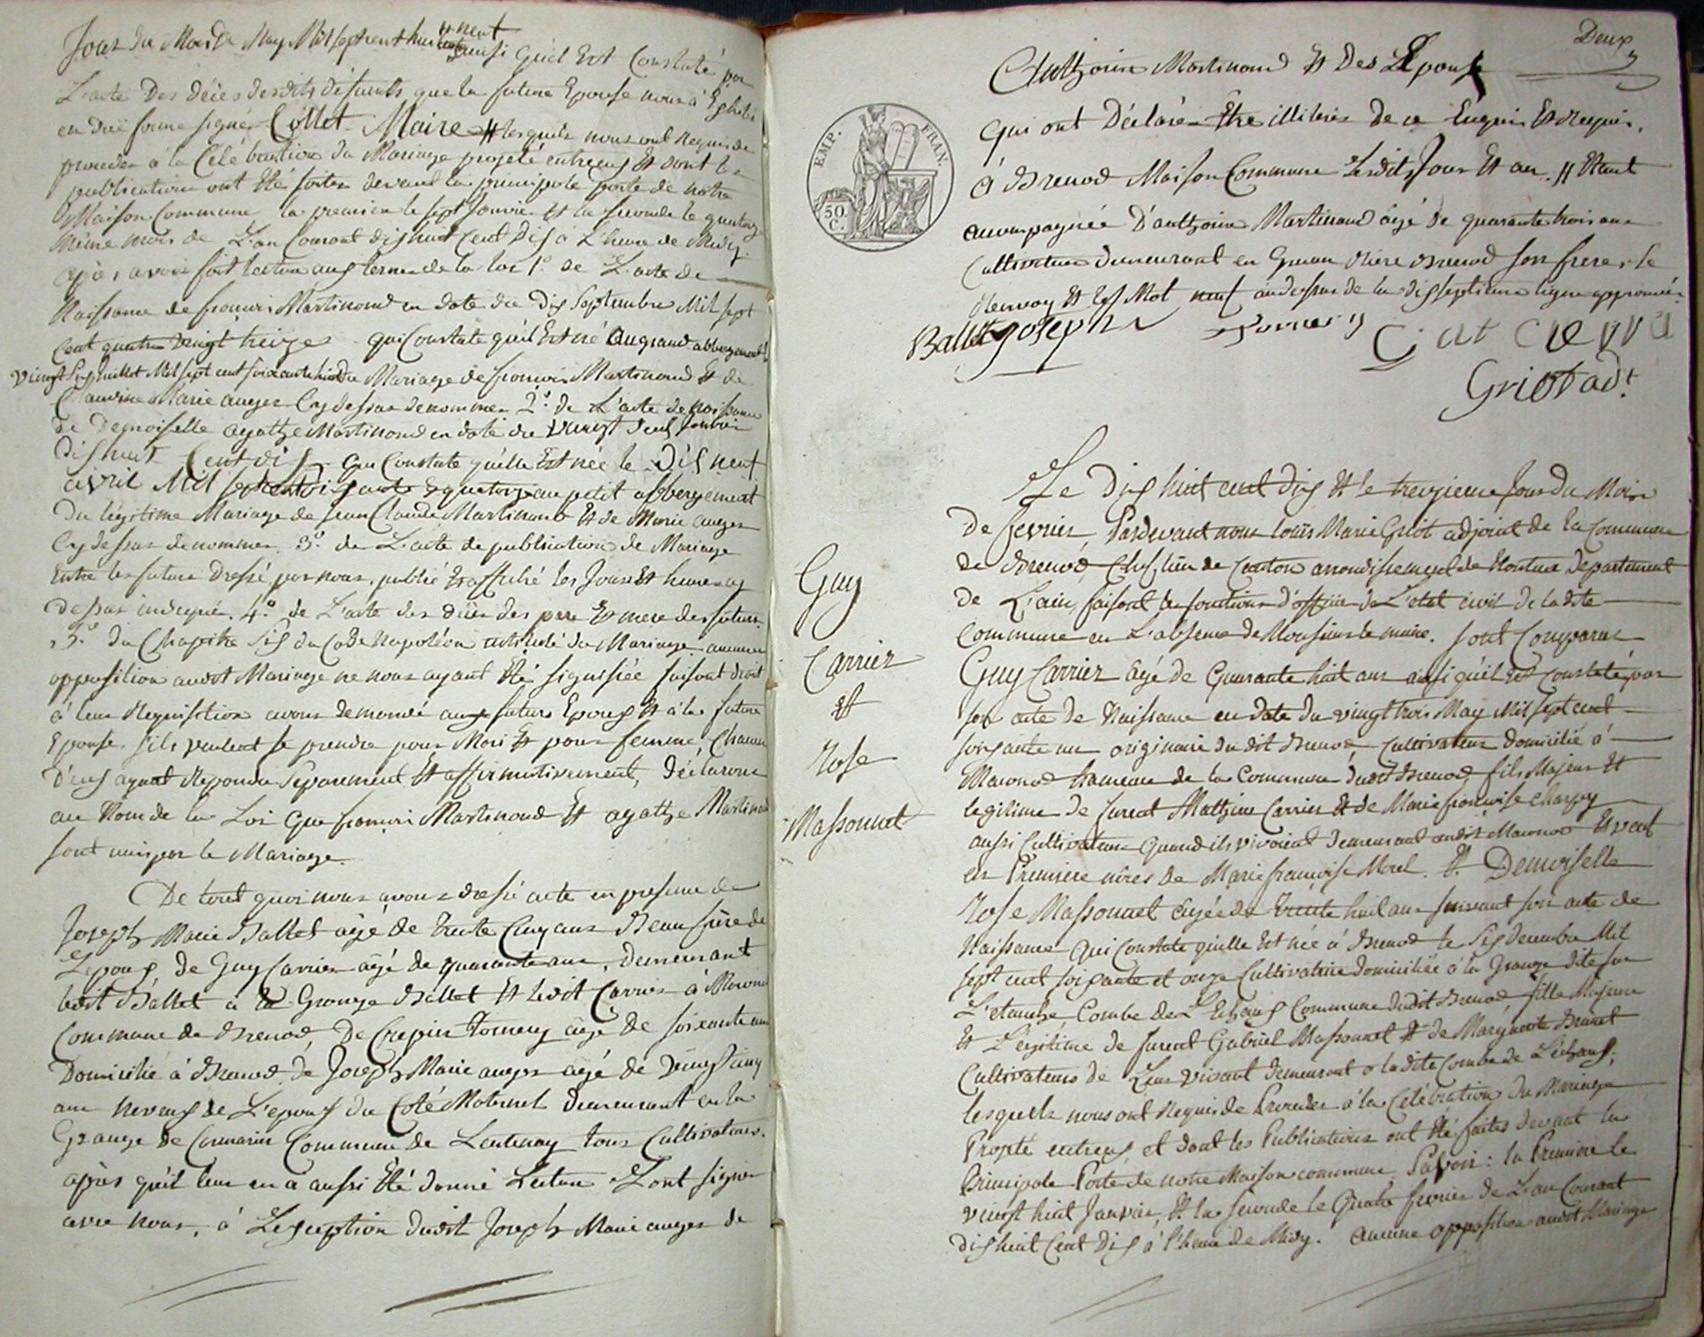 Jour du Mois de May Mil sept cent huit
ainsi qu'il Est Constaté par
L'acte Des décès desdits défunts que la future Epouse nous a Exhibé
en due forme signé Collet Maire # lesquels nous ont Requis de
proceder à la Célébration du Mariage projeté entr'eux Et dont les
publications ont été faites devant la principale porte de notre
Maison Commune la premiere le sept Janvier Et la seconde le quatorze
même mois de L'an Courant dix huit Cent Dix à L'heure de Midy
après avoir fait lecture aux termes de la loi 1º de L'acte de
Naissance de françois Martinand en date du Dix Septembre Mil sept
Cent quatre vingt treize qui Constate qu'il Est né au grand abbergement
Vingt Six Juillet Mil sept cent soixante huit du Mariage de françois Martinand Et de
Claudine Marie auger Cy dessus denommés 2º de L'acte de Naissance
de Demoiselle agathe Martinand en date du Vingt deux Janvier
dix huit Cent dix qui Constate qu'elle Est née le dix neuf
avril Mil sept cent soixante quatorze au petit abbergement
Du légitime Mariage de Jean Claude Martinand Et de Marie auger
Cy dessus denommés 3º de L'acte de publication de Mariage
Entre les futurs Dressé par nous, publié Et affiché les Jours Et heures cy
dessus indiqués. 4º de L'acte des décès des pere Et mere des futurs
5º du Chapitre Six du Code Napoléon intitulé du Mariage aucune
opposition audit Mariage ne nous ayant Eté signifiée faisant droit
à leur Requisition avons demandé aux futurs Epoux Et à la future
Epouse s'ils veulent se prendre pour Mari Et pour femme, Chacun
D'eux ayant Repondu Séparement Et affirmativement, déclarons
au Nom de la Loi Que françois Martinand Et agathe Martinand
sont unis par le Mariage.
De tout quoi nous avons dressé acte en presence de
Joseph Marie Ballet âgé de trente Cinq ans Beau frère de
L'Epoux, de Guy Carrier âgé de quarante ans, demeurant
ledit Ballet à la Grange Ballet Et ledit Carrier à Macono
Commune de Brenod, De Crepin Tornery âgé de soixante ans
Domicilié à Brenod, de Joseph Marie auger âgé de Vingt Cinq
ans Neveux de L'epoux du Coté Maternel demeurant en la
Grange de Cormarin Commune de Lantenay tous Cultivateurs.
après qu'il leur en a aussi Eté donné Lecture L'ont signé
avec Nous, à L'exception dudit Joseph Marie auger de
Deux
Anthoine Martinand Et des Epoux
Qui ont Déclaré Etre illitérés de ce Enquis Et Requis.
à Brenod Maison Commune Lesdits Jour Et an. # Etant
accompagnée D'anthoine Martinand âgé de quarante trois ans
Cultivateur demeurant en Grange derière Brenod son frere. le
Renvoy Et Les Mot neuf au dessus de la dix septieme ligne approuvés
EMP. FRAN.
50 C.
Ballet joseph
Griot adt
Guy
Carrier
Et
Rose
Massonnet
Le Dix huit cent Dix Et le treizieme Jour du Mois
De fevrier Pardevant nous Louis Marie Griot adjoint de la Commune
de Brenod, Chef lieu de Canton arrondissement de Nantua Departement
de L'ain, faisant les fonctions d'officier de L'etat civil de ladite
Commune en L'absence de Monsieur le maire. sont Comparus
Guy Carrier âgé de Quarante huit ans ainsi qu'il Est Constaté par
son acte de Naissance en date du vingt trois May Mil sept cent
soixante un originaire du dit Brenod Cultivateur domicilié à
Macono hameau de la Commune dudit Brenod, fils Majeur Et
legitime de furent Mathieu Carrier Et de Marie françoise Charpy
aussi Cultivateurs Quand ils vivoient demeurant audit Macono Et veuf
en Premiere nôces de Marie françoise Morel. Et Demoiselle
Rose Massonnet âgée de trente huit ans suivant son acte de
Naissance Qui Constate qu'elle Est née à Brenod le Six decembre Mil
sept cent soixante et onze Cultivatrice domiciliée à la Grange dite sur
L'etanche Combe de L'Echaux Commune dudit Brenod fille Majeure
Et Légitime de furent Gabriel Massonnet Et de Marguerite Brunet
Cultivateurs de Leur Vivant demeurant à ladite Combe de L'échaux;
lesquels nous ont Requis de Proceder à la Célébration du Mariage
Projeté entr'eux, et dont les Publications ont Eté faites devant la
Principale Porte de notre Maison commune, Savoir: la Premiere le
vingt huit Janvier, Et la seconde le Quatre fevrier de L'an Courant
dix huit Cent Dix à l'heure de Midy. aucune opposition audit Mariage